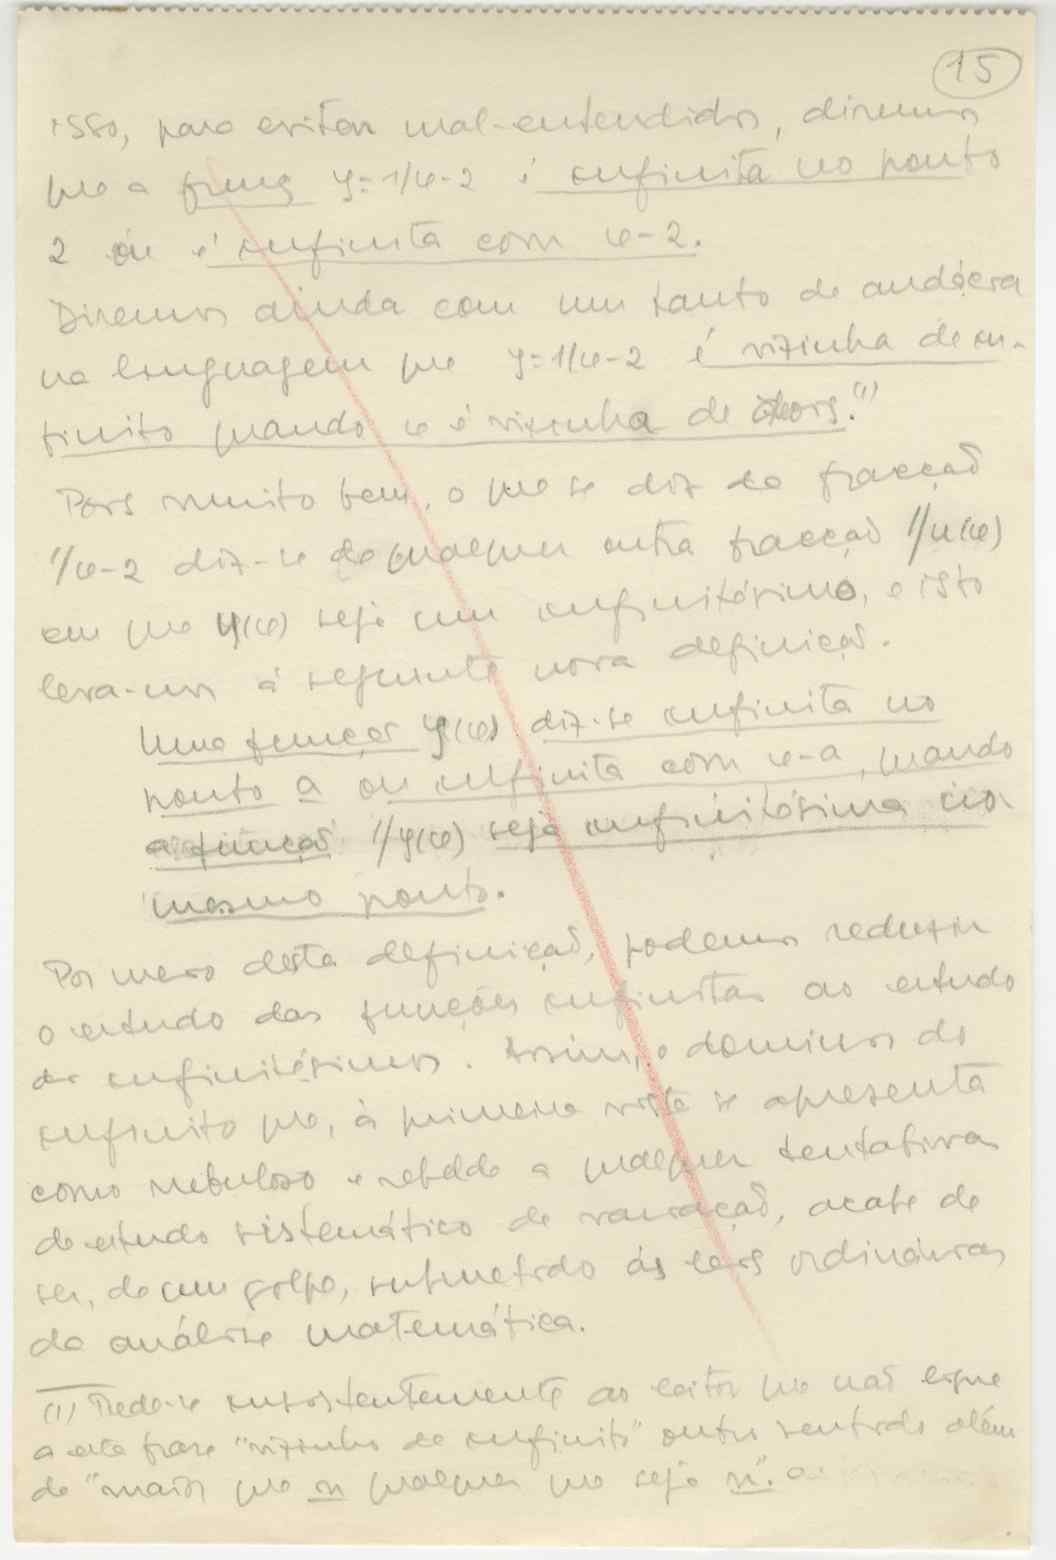 15
isso, para evitar mal-entendidos, diremos
que a função y=1/x-2 é infinita no ponto
2 ou é infinita com x-2.
Diremos ainda com um tanto de audácia
na linguagem que y=1/x-2 é vizinha de in-
finito quando x é vizinha de dois.(1)
Pois muito bem, o que se diz da fracção
1/x-2 diz-se de qualquer outra fracção 1/u(x)
em que y(x) seja um infinitésimo, e isto
leva-nos à seguinte nova definição.
Uma função y(x) diz-se infinita no
ponto a ou infinita com x-a, quando
a função 1/y(x) seja infinitésima no
mesmo ponto.
Por meio desta definição, podemos reduzir
o estudo das funções infinitas ao estudo
de infinitésimos. Assim, o domínios do
infinito que, à primeira vista se apresenta
como nebuloso e rebelde a qualquer tentativa
de estudo sistemático de variação, acaba de
ser, de um golpe, submetido às leis ordinárias
da análise matemática.
(1) Pede-se insistentemente ao leitor que não ligue
a esta frase "vizinho de infinito" outro sentido além
de "maior que n qualquer que seja n".